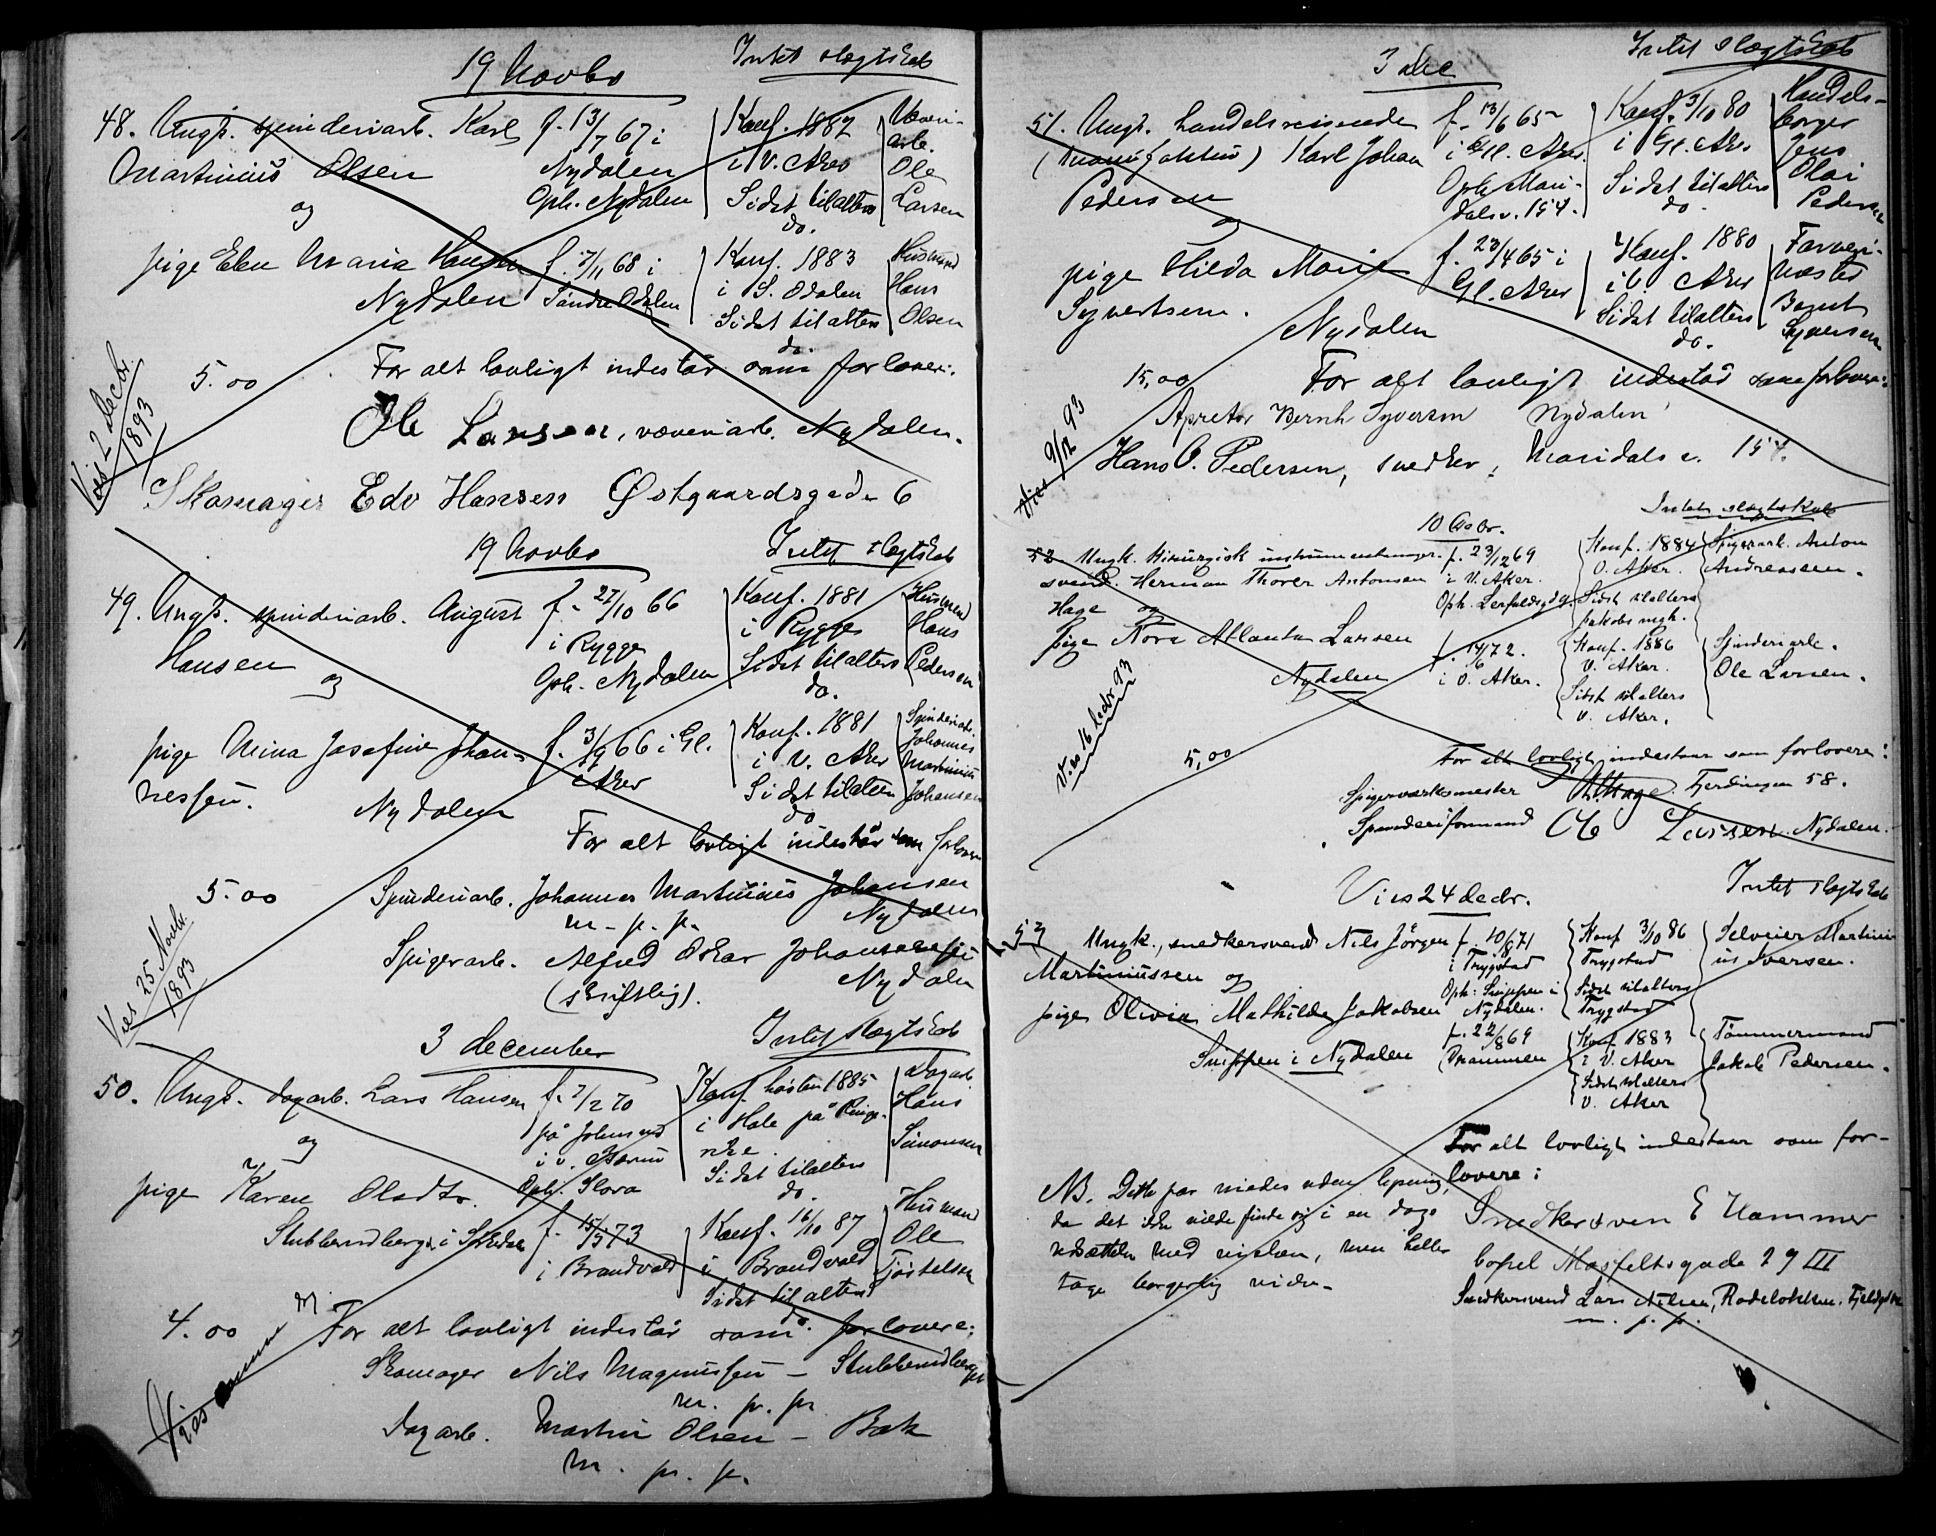 19 Novbr
Intet slægtskab
48. Ungk. spinderiarb. Karl
Martinius Olsen
f. 13/7 67 i
Nydalen
Oph. Nydalen
Konf. 1882
i V. Aker
Sidst tilalters
do.
Væveri-
arb.
Ole
Larsen
og
pige Elen Maria Hansen
Nydalen
f. 7/11 68 i
Søndre Odalen
Konf. 1883
i S. Odalen
Sidst tilalters
do.
Husmand
Hans
Olsen
5.00
For alt lovligt indestår som forlovere:
Ole Larsen, væveriarb. Nydalen.
Skomager Edv Hansen Østgaardsgade 6
Vies 2 Decbr.
1893
19 Novbr
Intet slægtskab
49. Ungk. spinderiarb. August
Hansen
f. 27/10 66
i Rygge
Oph. Nydalen
Konf. 1881
i Rygge
Sidst tilalters
do.
Husmand
Hans
Pedersen
og
pige Mina Josefine Johan-
nessen.
Nydalen
f. 3/9 66 i Gl.
Aker
Konf. 1881
i V. Aker
Sidst tilalters
do
Spinderiarb.
Johannes
Martinius
Johansen
For alt lovligt indestår som forlovere
5.00
Spinderiarb. Johannes Martinius Johansen
Nydalen
m. p. p.
Spigerarb. Alfred Oskar
Nydalen
(skriftlig).
Vies 25 Novbr.
1893
3 december
Intet slægtskab
50. Ungk. dagarb. Lars Hansen
f. 7/2 70
på
i V. Bærum
Oph.
Konf. høsten 1885
i Hole på Ringe-
rike.
Sidst tilalters
do.
Dagarb.
Hans
Simonsen
og
pige Karen Olsdtr.
f. 15/5 73
i Brandvold
Konf. 16/10 87
i Brandvold
Sidst tilalters
do.
Husmand
Ole
4.00
For alt lovligt indestår som forlovere:
Skomager Nils Magnussen –
m. p. p.
Dagarb. Martin Olsen – Bak
m. p. p.
Vies
3 dec
Intet slægtskab
51. Ungk. handelsreisende
(manufaktur) Karl Johan
Pedersen
f. 13/6 65
i Gl. Aker.
Oph. Mari-
dalsv. 154.
Konf. 3/10 80
i Gl. Aker
Sidst tilalters
do.
Handels-
borger
Jens
Olai
Pedersen
og
pige Hilda Marie
Syvertsen.
Nydalen
f. 23/4 65 i
Gl. Aker
Konf. 1880
i V. Aker
Sidst tilalters
do.
Farveri-
mester
Bernt
Syversen
15,00
For alt lovligt indestår som forlovere:
Apretør Bernh Syversen Nydalen
Hans O. Pedersen, snedker, Maridalsv. 154.
Vies 9/12 93
10 Decbr.
Intet slægtskab
52 Ungk. kirurgisk instrumentmager-
svend. Herman Thorer Antonsen
Hage og
f. 23/12 69
i V. Aker.
Konf. 1884
V. Aker.
Sidst tilalters
Jakobs mgh.
Spigerarb. Anton
Andreassen.
pige Nora Atlanta Larsen
Nydalen
f. 14/6 72.
i V. Aker.
Konf. 1886
V. Aker.
Sidst tilalters
V. Aker.
Spinderiarb.
Ole Larsen.
Vies 16 decbr 93
5,00
For alt lovligt indestaar som forlovere:
Spigerværksmester A. Hage. Fjerdingen 58.
Spinderiformand Ole Larsen. Nydalen.
Vies 24 decbr.
Intet slægtskab
53 Ungk., snedkersvend Nils Jørgen
Martiniussen og
f. 10/8 71
i Trygstad
Oph: Snippen i
Nydalen.
Konf 3/10 86
Trygstad
Sidst tilalters
Trygstad
Selveier Martin-
ius Iversen.
pige Olivia Mathilde Jakobsen
Snippen i Nydalen
f. 22/8 69
Drammen
Konf. 1883
i V. Aker
Sidst tilalters
V. Aker
Tømmermand
Jakob Pedersen.
For alt lovligt indestaar som for-
lovere:
NB. Dette par viedes uden lysning,
da det ikke vilde finde sig i en dags
udsættelse med vielsen, men heller
tage borgerlig vielse.
Snedkersven E Hammer
bopel Mosfeltsgade 19 III
Snedkersvend Lars Nilsen, Rodeløkken.
m. p. p.